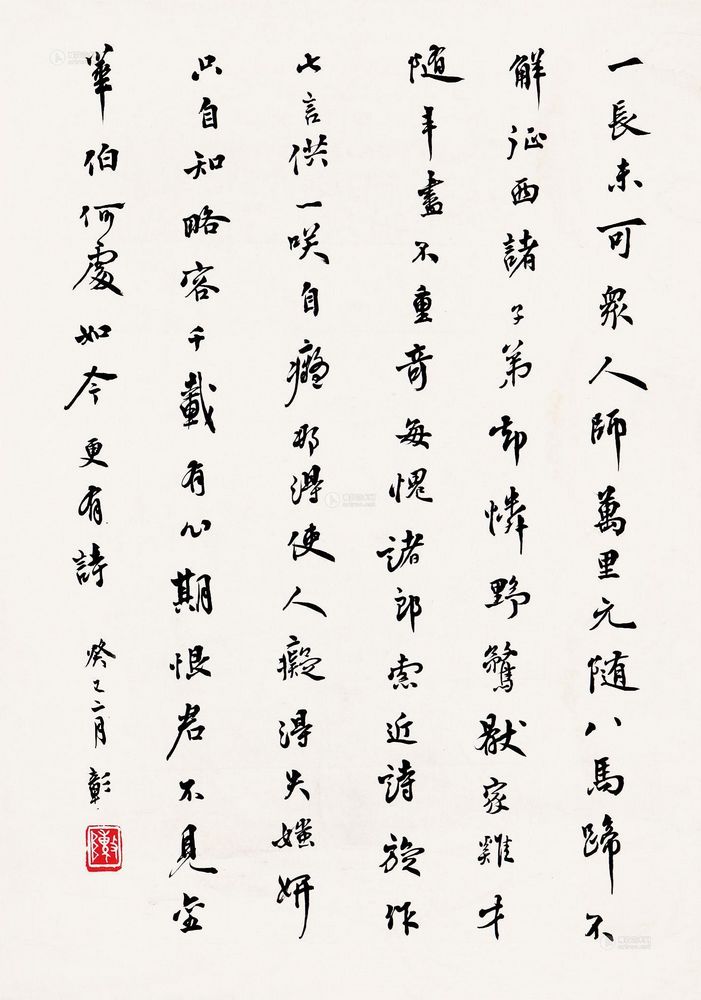 一長未可眾人師萬里元随八馬蹄不
解征西諸子弟却憐野鶩猒家雞才
随年盡不重奇每愧諸郎索近詩旋作
七言供一咲自癡那得使人癡得失媸妍
只自知略容千載有心期恨君不見金
華伯何處如今更有詩 癸巳二月 彰